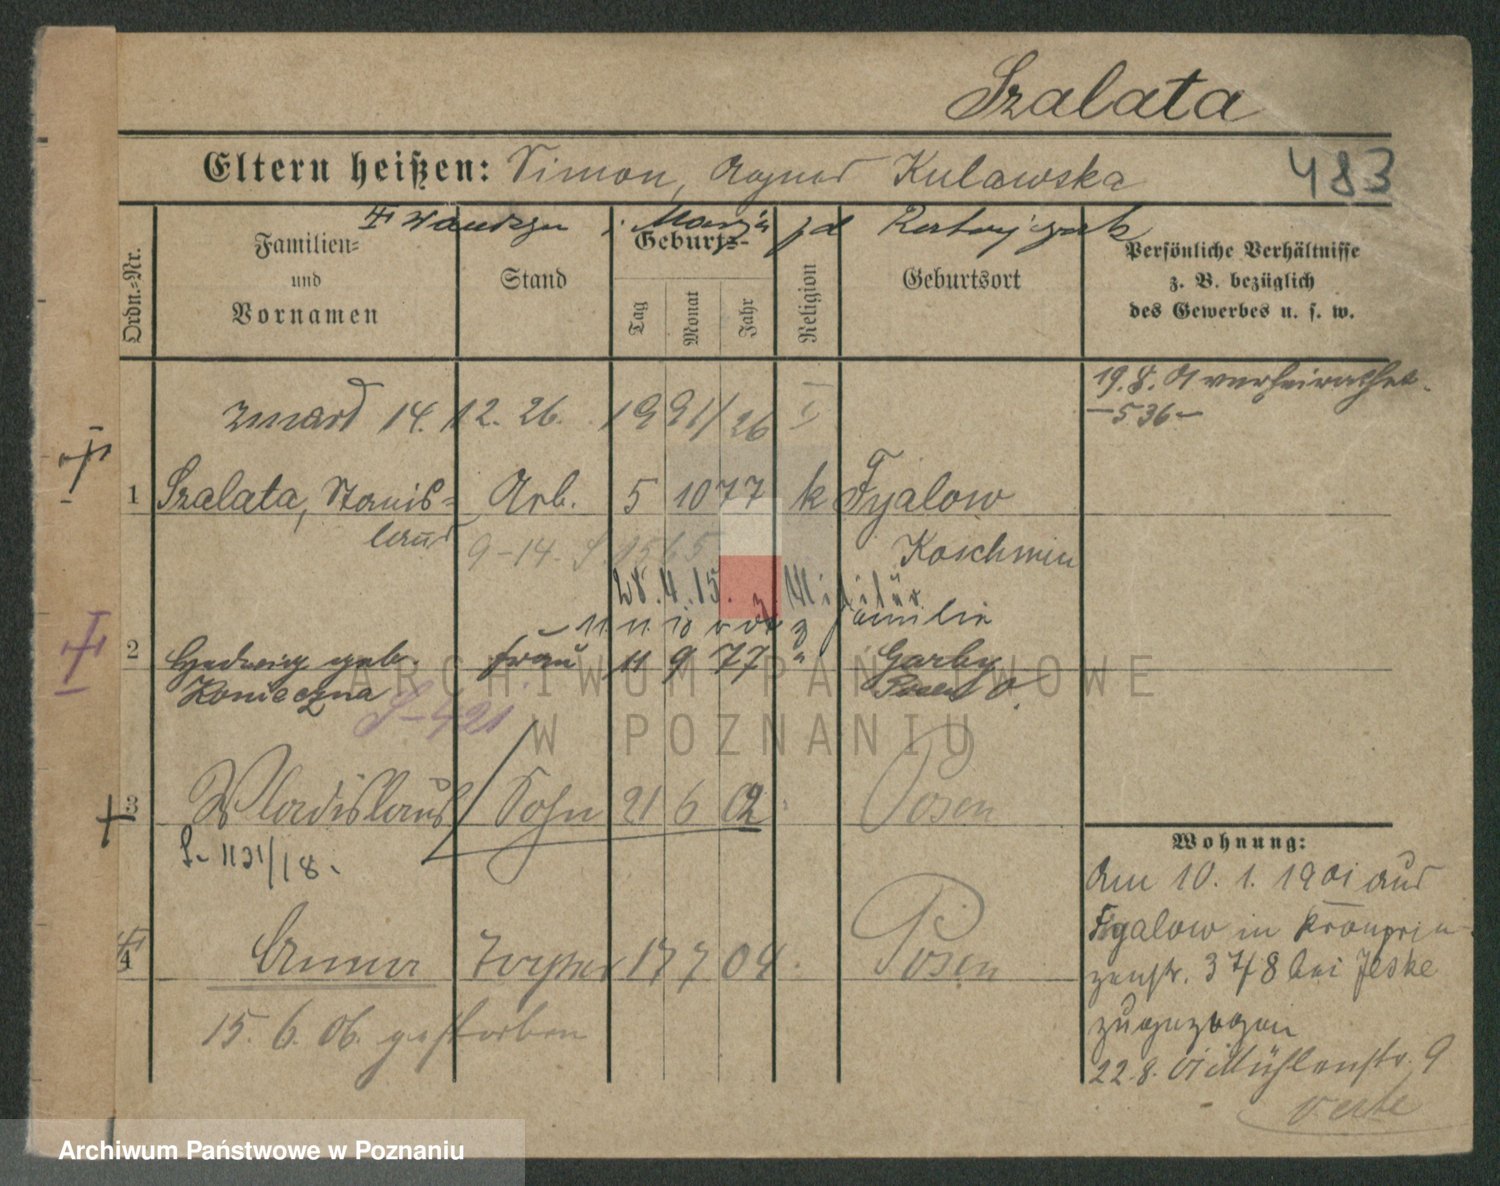 Szalata
Eltern heißen: Simon, Agnes Kulawska
483
Ordn.-Nr.
Familien-
und
Vornamen
Stand
Geburts-
Tag
Monat
Jahr
Religion
Geburtsort
Persönliche Verhältnisse
z. B. bezüglich
des Gewerbes u. s. w.
19.8.01 verheirathet.
-536-
14.12.26. 1991/26
1 Szalata, Stanis- Arb. 5 10 77 k Fyalow
laus
9-14.
Koschmin
28.4.15. z. Militär
Familie
2 Hedwig geb. Frau 11 9 77 " Garby
Konieczna
Posen O.
S-421
3 Wladislaus Sohn 21 6 02 Posen
S- 1121/18.
4 Anna Tochter 17 7 04 Posen
15.6.06. gestorben
Wohnung:
Am 10.1.1901 aus
Fyalow in Kronprin-
zenstr. 37/8 bei Jeske
zugezogen
22.8.01 Mühlenstr. 9
verte
ARCHIWUM PAŃSTWOWE
W POZNANIU
Archiwum Państwowe w Poznaniu